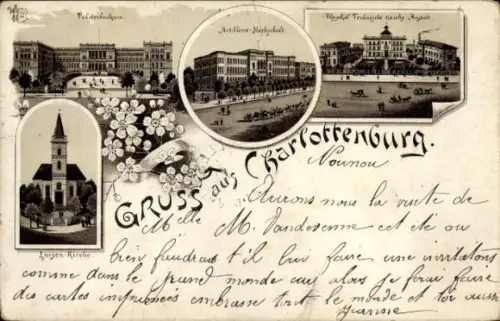 Polytechnikum
Artillerie-Hochschule
Physikal. Technische Reichs-Anstalt
Luisen-Kirche
Gruss aus Charlottenburg.
Nounou
Aurons nous la visite de
Melle M. Vandesenne cet été ou
bien faudrait t'il leur faire une invitation
comme dans le grand monde ou alors je ferai faire
des cartes imprimées embrasse tout le monde et toi aussi
Jeanne